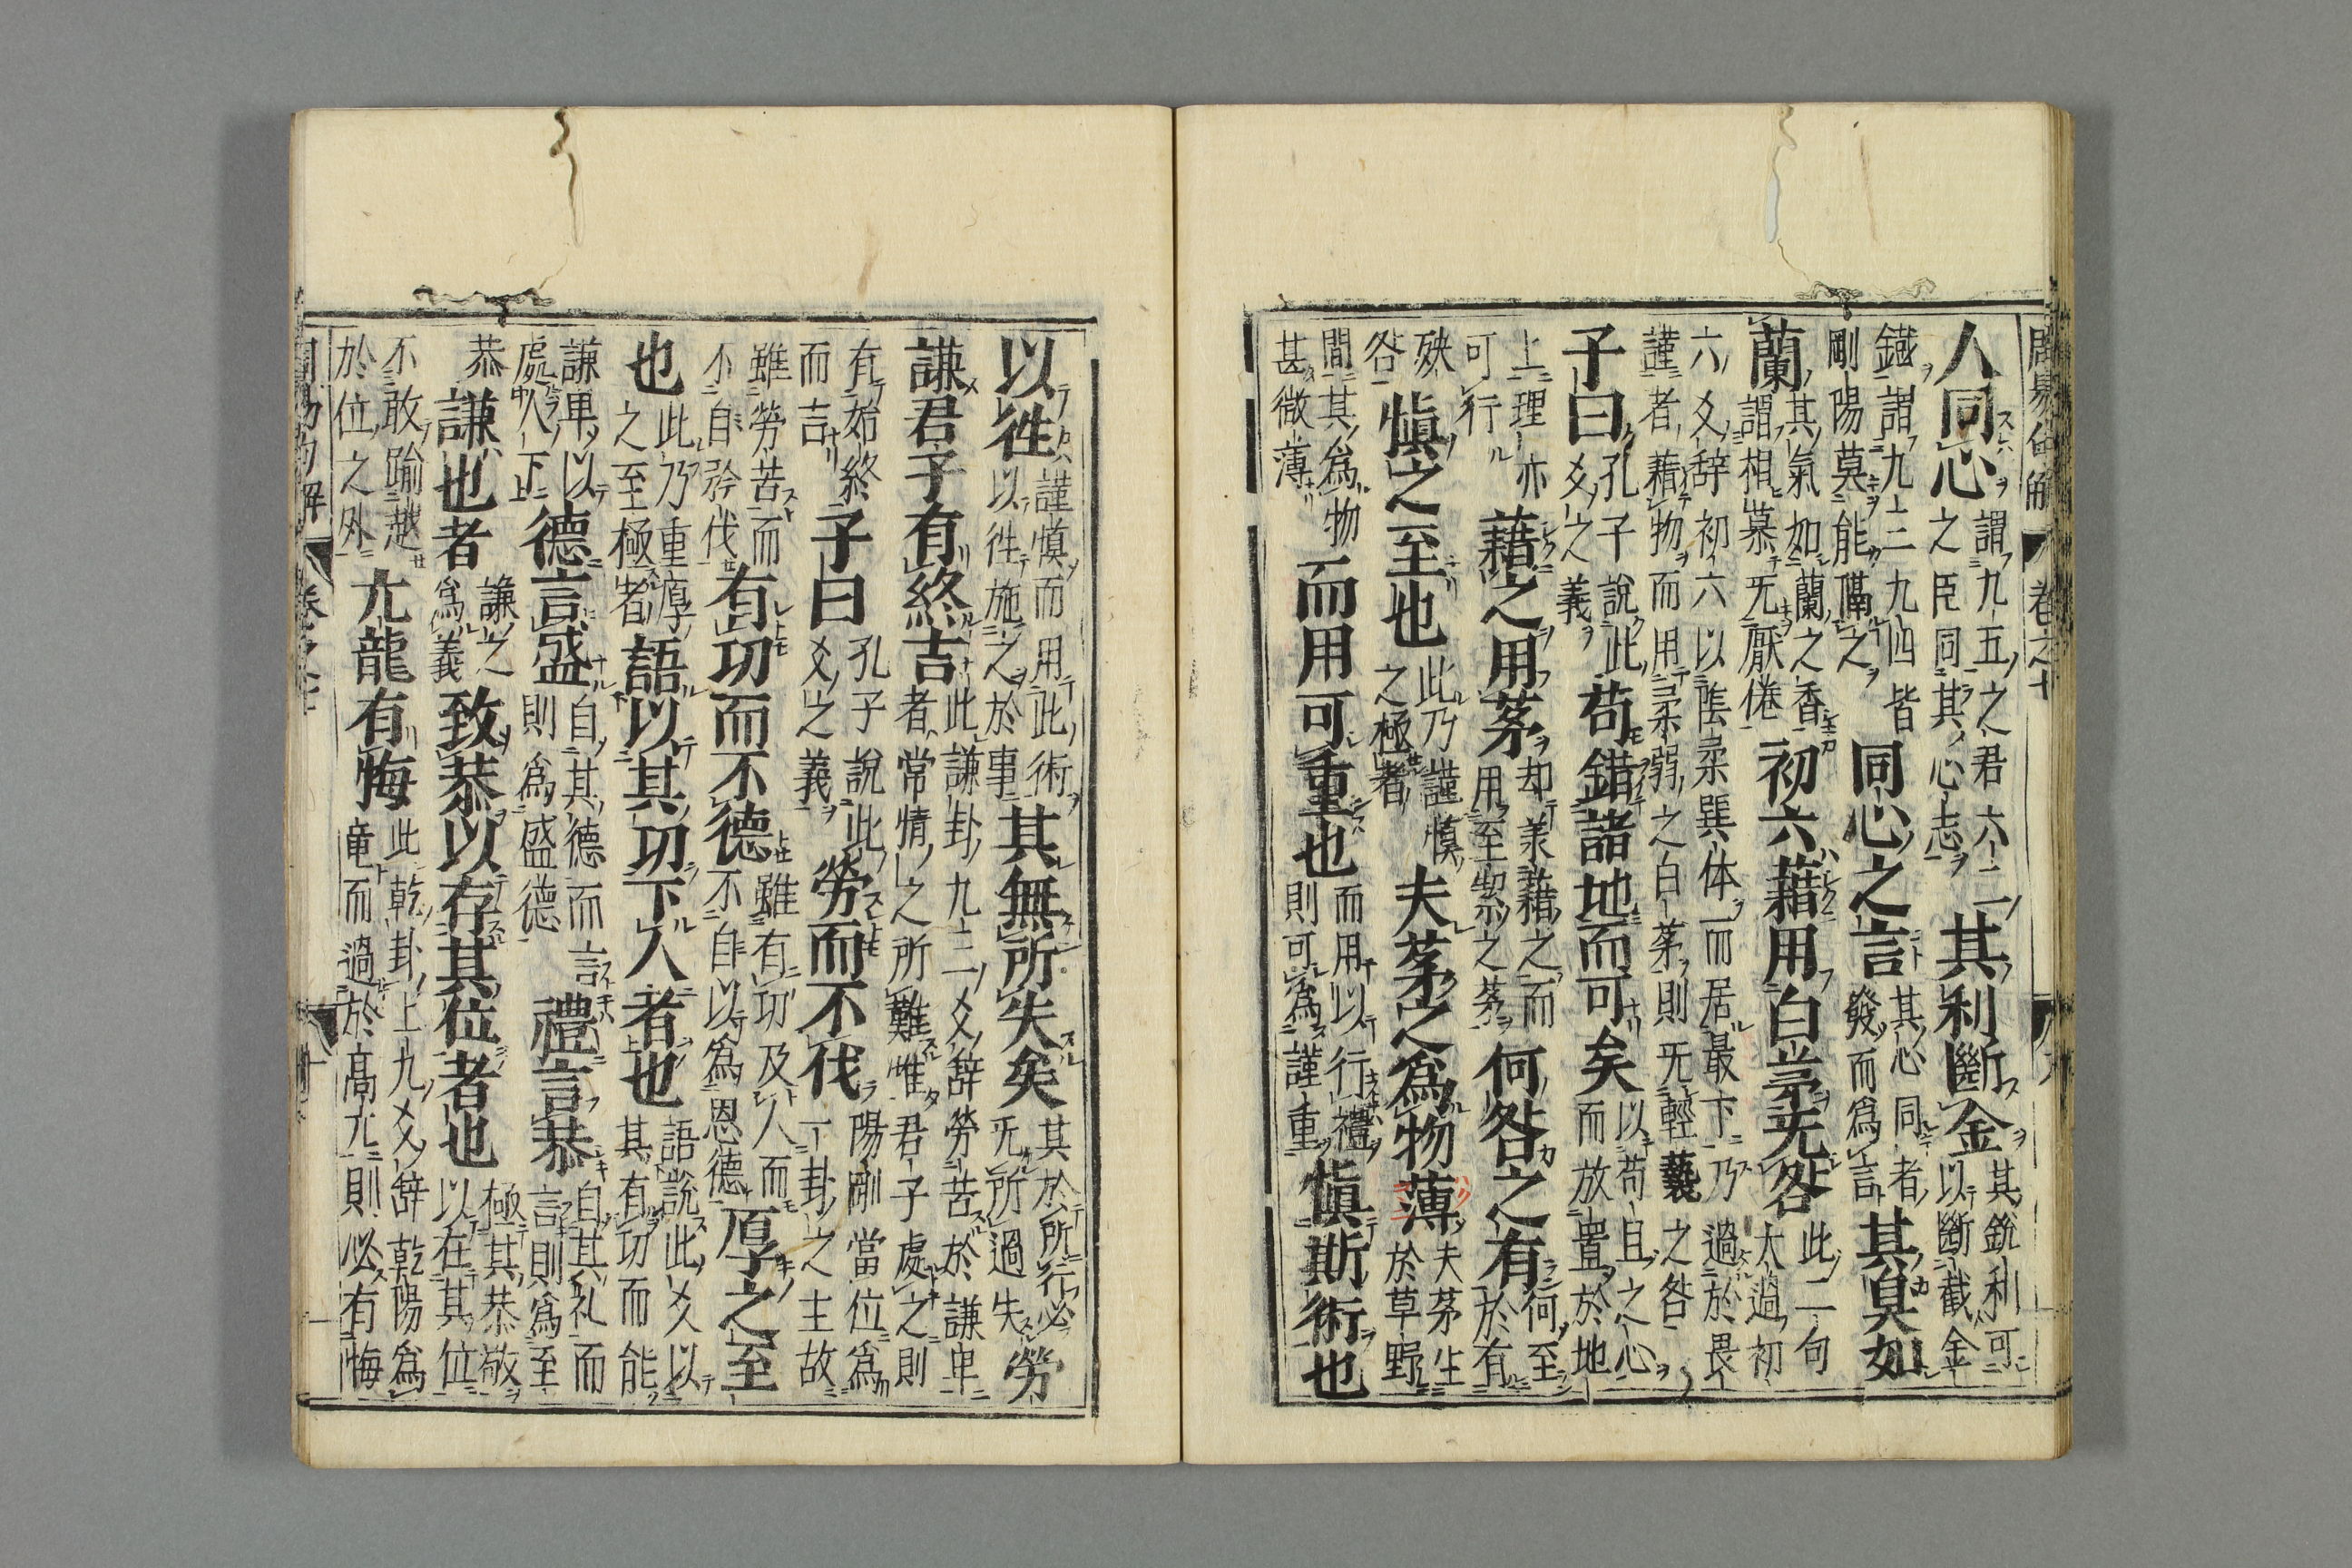 周易句解 卷之十
人同心 謂九五之君六二 之臣同其心志 其利斷金 其銳利可 以斷截金
鐵謂九三九四皆 剛陽莫能隔之 同心之言 其心同者 發而為言 其臭如
蘭 其氣如蘭之香 謂相慕无厭倦 初六藉用白茅无咎 此二句 大過初
六爻辞初六以陰柔巽体而居最下乃過於畏
謹者藉物而用柔弱之白茅則无輕藝之咎
子曰 孔子說此 爻之義 苟錯諸地而可矣 以苟且之心 而放置於地
上理亦 可行 藉之用茅 却羕藉之而 用至絜之茅 何咎之有 何至 於有
殃 咎 慎之至也 此乃謹慎 之極者 夫茅之為物薄 夫茅生 於草野
間其為物 甚微薄 而用可重也 而用以行禮 則可為謹重 慎斯術也
以徃 謹慎而用此術 以徃施之於事 其無所失矣 其於所行必 无所過失 勞
謙君子有終吉 此謙卦九三爻辞勞苦於謙卑 者常情之所難惟君子處之則
有始終 而言 子曰 孔子說此 爻之義 勞而不伐 陽剛當位為 一卦之主故
雖勞苦而 不自矜伐 有功而不德 雖有功及人而 不自以為恩德 厚之至
也 此乃重厚 之至極者 語以其功下人者也 語說此爻以 其有功而能
謙卑以 處人下 德言盛 自其德而言 則為盛德 禮言恭 自其礼而 言則為至
恭 謙也者 謙之 為義 致恭以存其位者也 極其恭敬 以在其位
不敢踰越 於位之外 亢龍有悔 此乾卦上九爻辞乾陽為 竜而過於高亢則必有悔